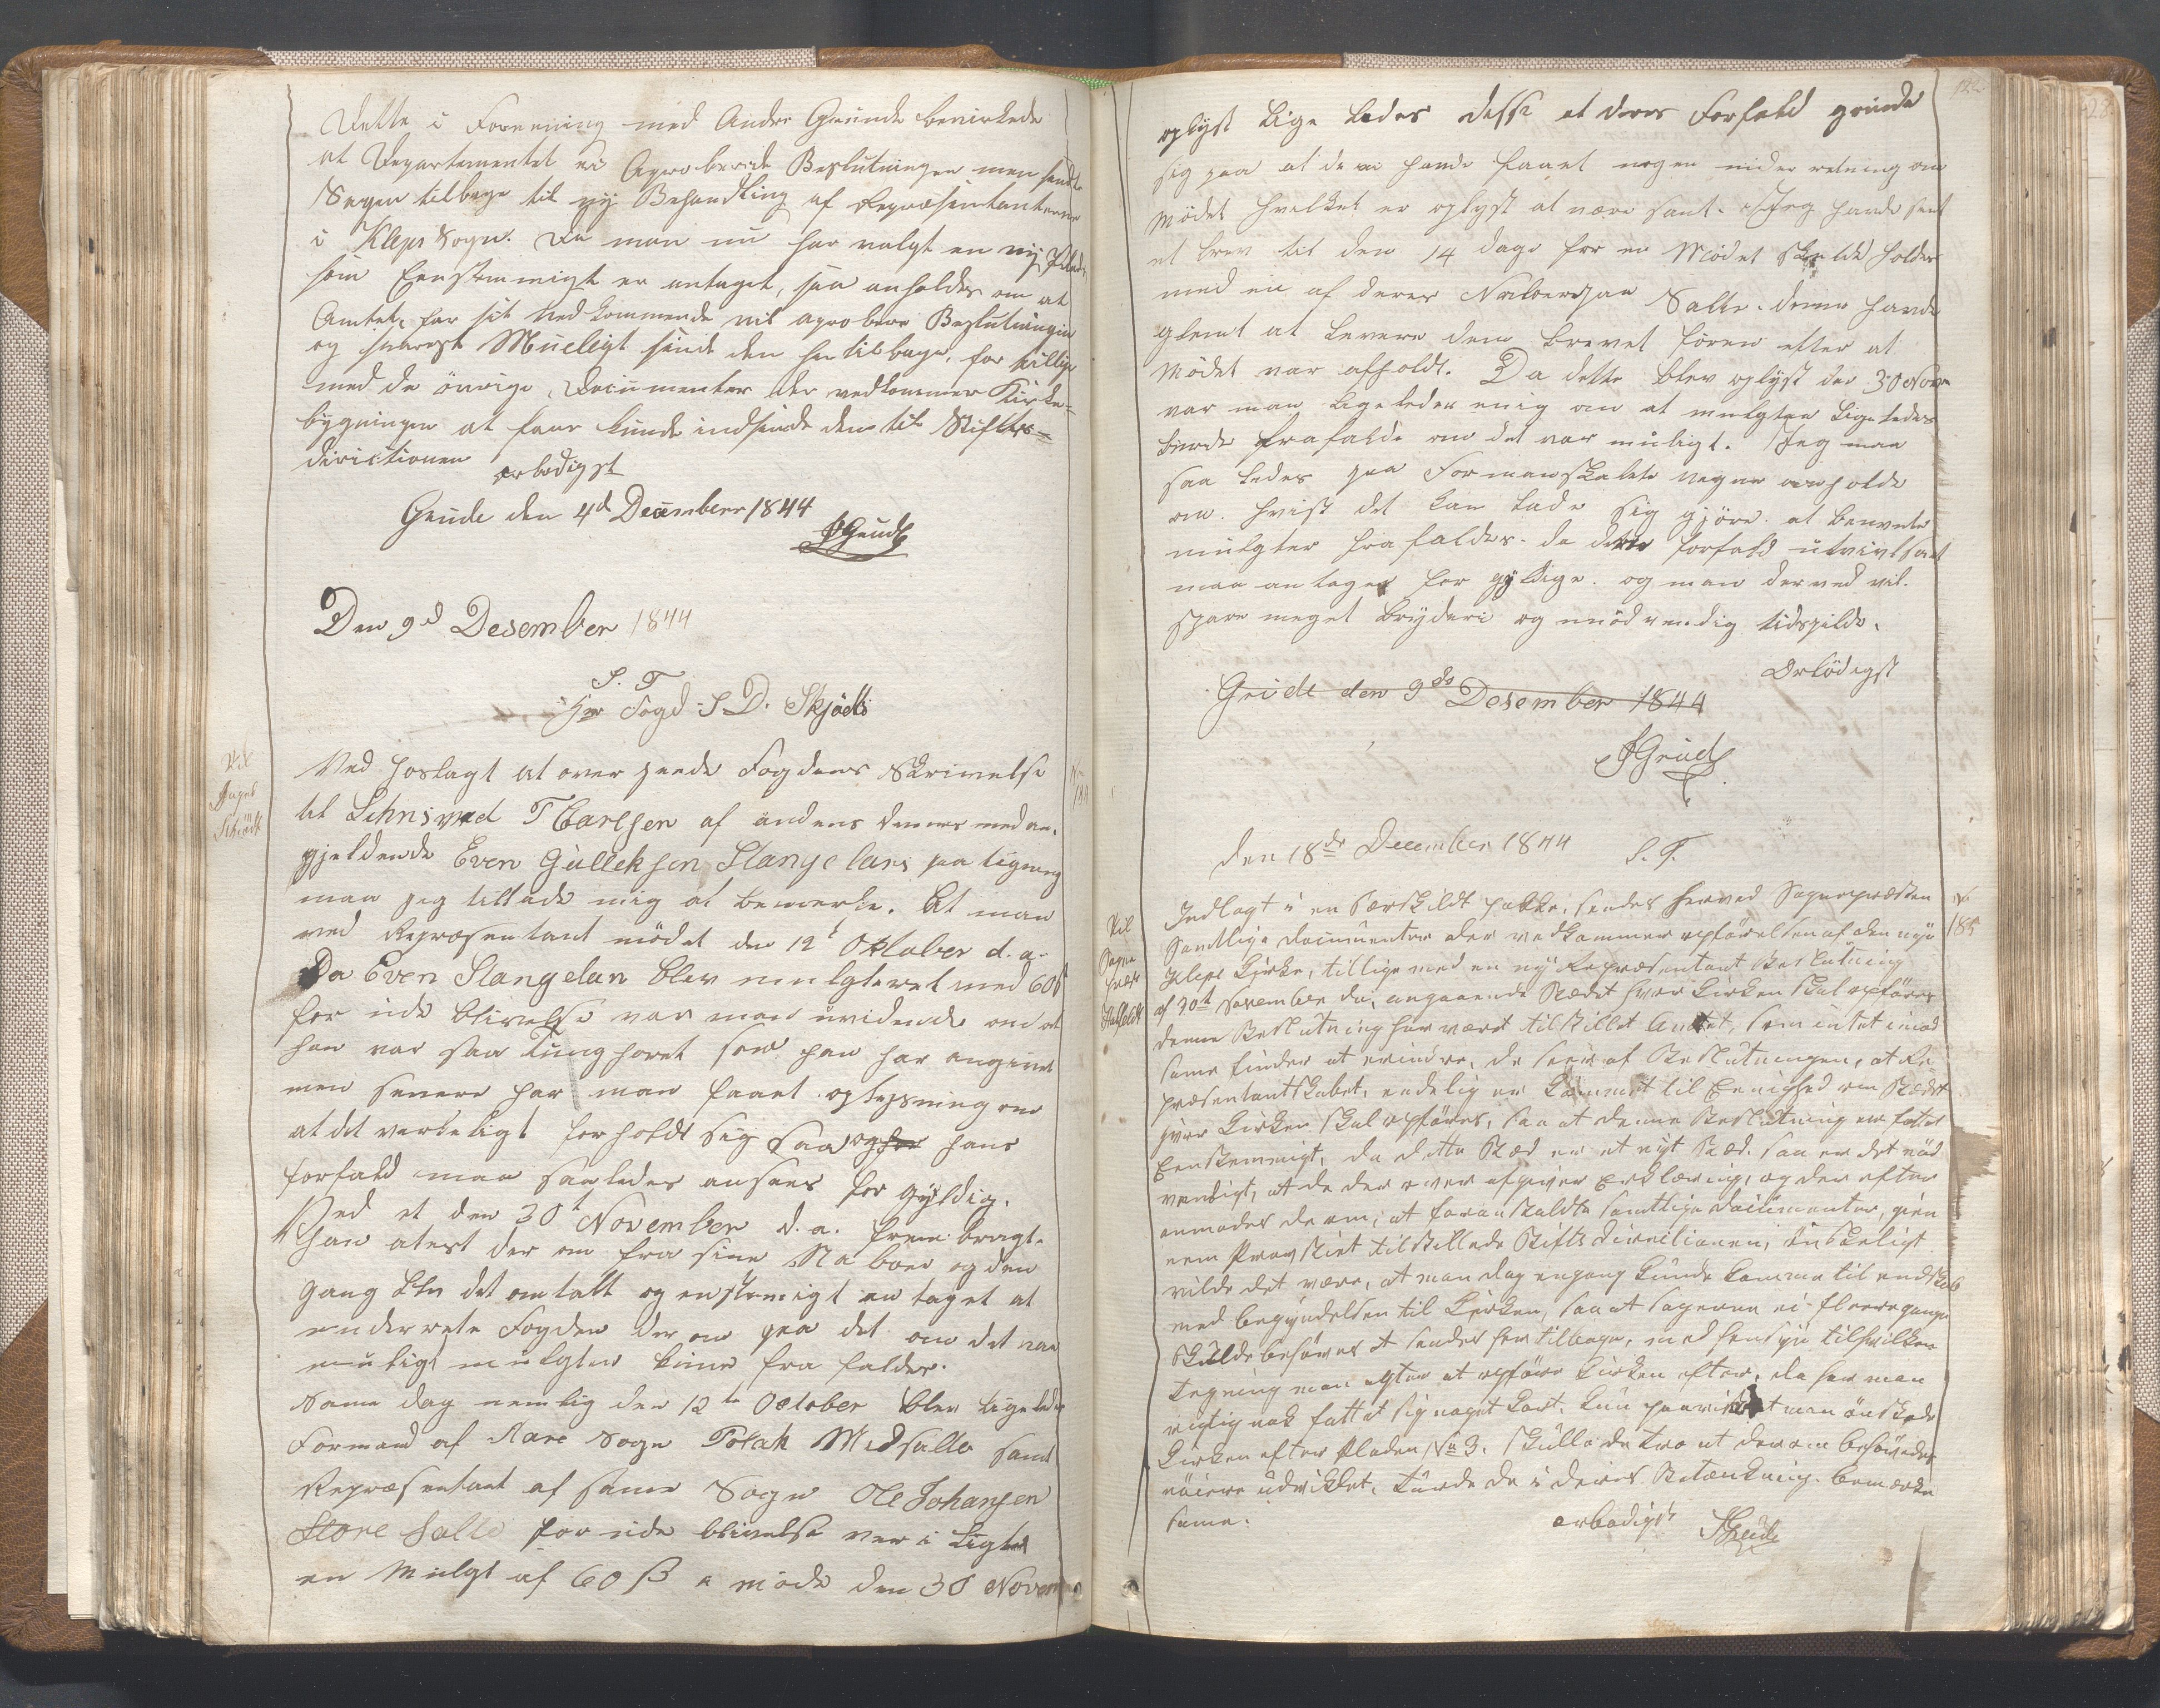 Dette i Forening med Andre Grunde bevirkede
at Departementet ei Aproberede Beslutningen men sendte
Sagen tilbage til ny Behandling af Repræsentanterne
i Kleps Sogn. Da man nu har valgt en ny
som Eenstemmigt er antaget, saa anholdes om at
Amtet for sit Vedkommende vil aprobere Beslutningen
og snarest Mueligt sende den her tilbage, for tillige
med de övrige Documenter der vedkommer Kirke-
bygningen at faar kunde indsende den til Stifts-
directionen
ærbödigst
Grude den 4d December 1844
Grude
Den 9d Desember 1844
S. T.
Herr Fogd S D. Skjödts
Til
Foged
Schiødt
No
184
Ved hoslagt at over sende Fogdens Skrivelse
til Lehnsmed T Carlsen af andens dennes med an-
gjeldende Even Gulleksen Stangelans paa tigning
maa jeg tillade mig at bemerke. At man
ved Repræsentant mödet den 12t Oktober d. a.
Da Even Stangelan blev mulgteret med 60ß
for ude blivelse var man uvidende om at
han var saa Tunghöret som han har angivet
men senere har man faaet oplysning om
at det verkeligt forholdt sig saa og hans
forfald maa saaledes ansees for gyldig.
Ved et den 30t November d. a. frem bragt
han atest der om fra sine Naboer og den
gang blev det omtalt og enstemigt an taget at
underrete Fogden der om paa det om det var
muligt mulgten kunde fra falder.
Same dag nemlig den 12te October blev ligeledes
Formand af Aare Sogn Tolak Medsalte samt
Repræsentant af same Sogn Ole Johansen
Store Salte for ude blivelse ver i ligtet
en Mulgt af 60 ß a möde den 30 Novem
122
oplyst lige ledes disse at deres Forfald grunde
sig paa at de ei havde faaet nogen underretning om
Mödet hvilket er oplyst at være sant. Jeg havde sent
et brev til den 14 dage for en Mödet skulde holdes
med en af deres Salte. denne havde
glemt at levere dem brevet foren efter at
Mödet var afholdt. Da dette blev oplyst den 30 Novem
var man ligeledes enig om at mulgten ligeledes
burde frafalde om det var muligt. Jeg maa
saa ledes paa Formanskabets vegne anholde
om. hvist det kan lade sig gjöre. at benevnte
mulgter frafaldes. da deres forfald utvivlsomt
maa antages for gyldige. og man derved vil
spare meget bryderi og unödvendig tidspilde.
Ærbödigst
Grude den 9de Desember 1844
Grude
den 18de December 1844
S. T.
Til
Sogne
præst
No
185
Indlagt i en særskildt pakke, sendes herved Sognepræsten
Samtlige Documenter der vedkommer opförelsen af den nye
Kleps Kirke, tillige med en ny Repræsentant Beslutning
af 30t November d.a., angaaende Stedet hvor Kirken skal opföres
denne Beslutning har været tilstillet Amtet, som intet imod
same finder at erindre, de seer af Beslutningen, at Re
præsentantskabet, endelig er kommet til Eenighed om Stedet
hvor Kirken skal opföres, saa at denne Beslutning er fattet
Eenstemmigt, da dette Sted er et nyt Sted. saa er det nöd
vendigt, at de der over afgiver Erklæring, og der efter
anmodes de om, at foranstaldte samtlige Documenter, gien
nem Provstiet tilstillede Stifts Directionen, önskeligt
vilde det være, at man dog engang kunde komme til endskab
med begyndelsen til Kirken, saa at sagerne ei flere gange
skulde behöves at sendes her tilbage, med hensyn til hvilken
Tegning man agter at opföre Kirken efter, da har man
rigtig nok fattet sig noget kort, kun paaviist at man önskede
Kirken efter Pladen No 3. skulle de troe at derom behövedes
nöiere udviklet, turde de i deres Betænkning bemærke
same.
ærbödigst Grude